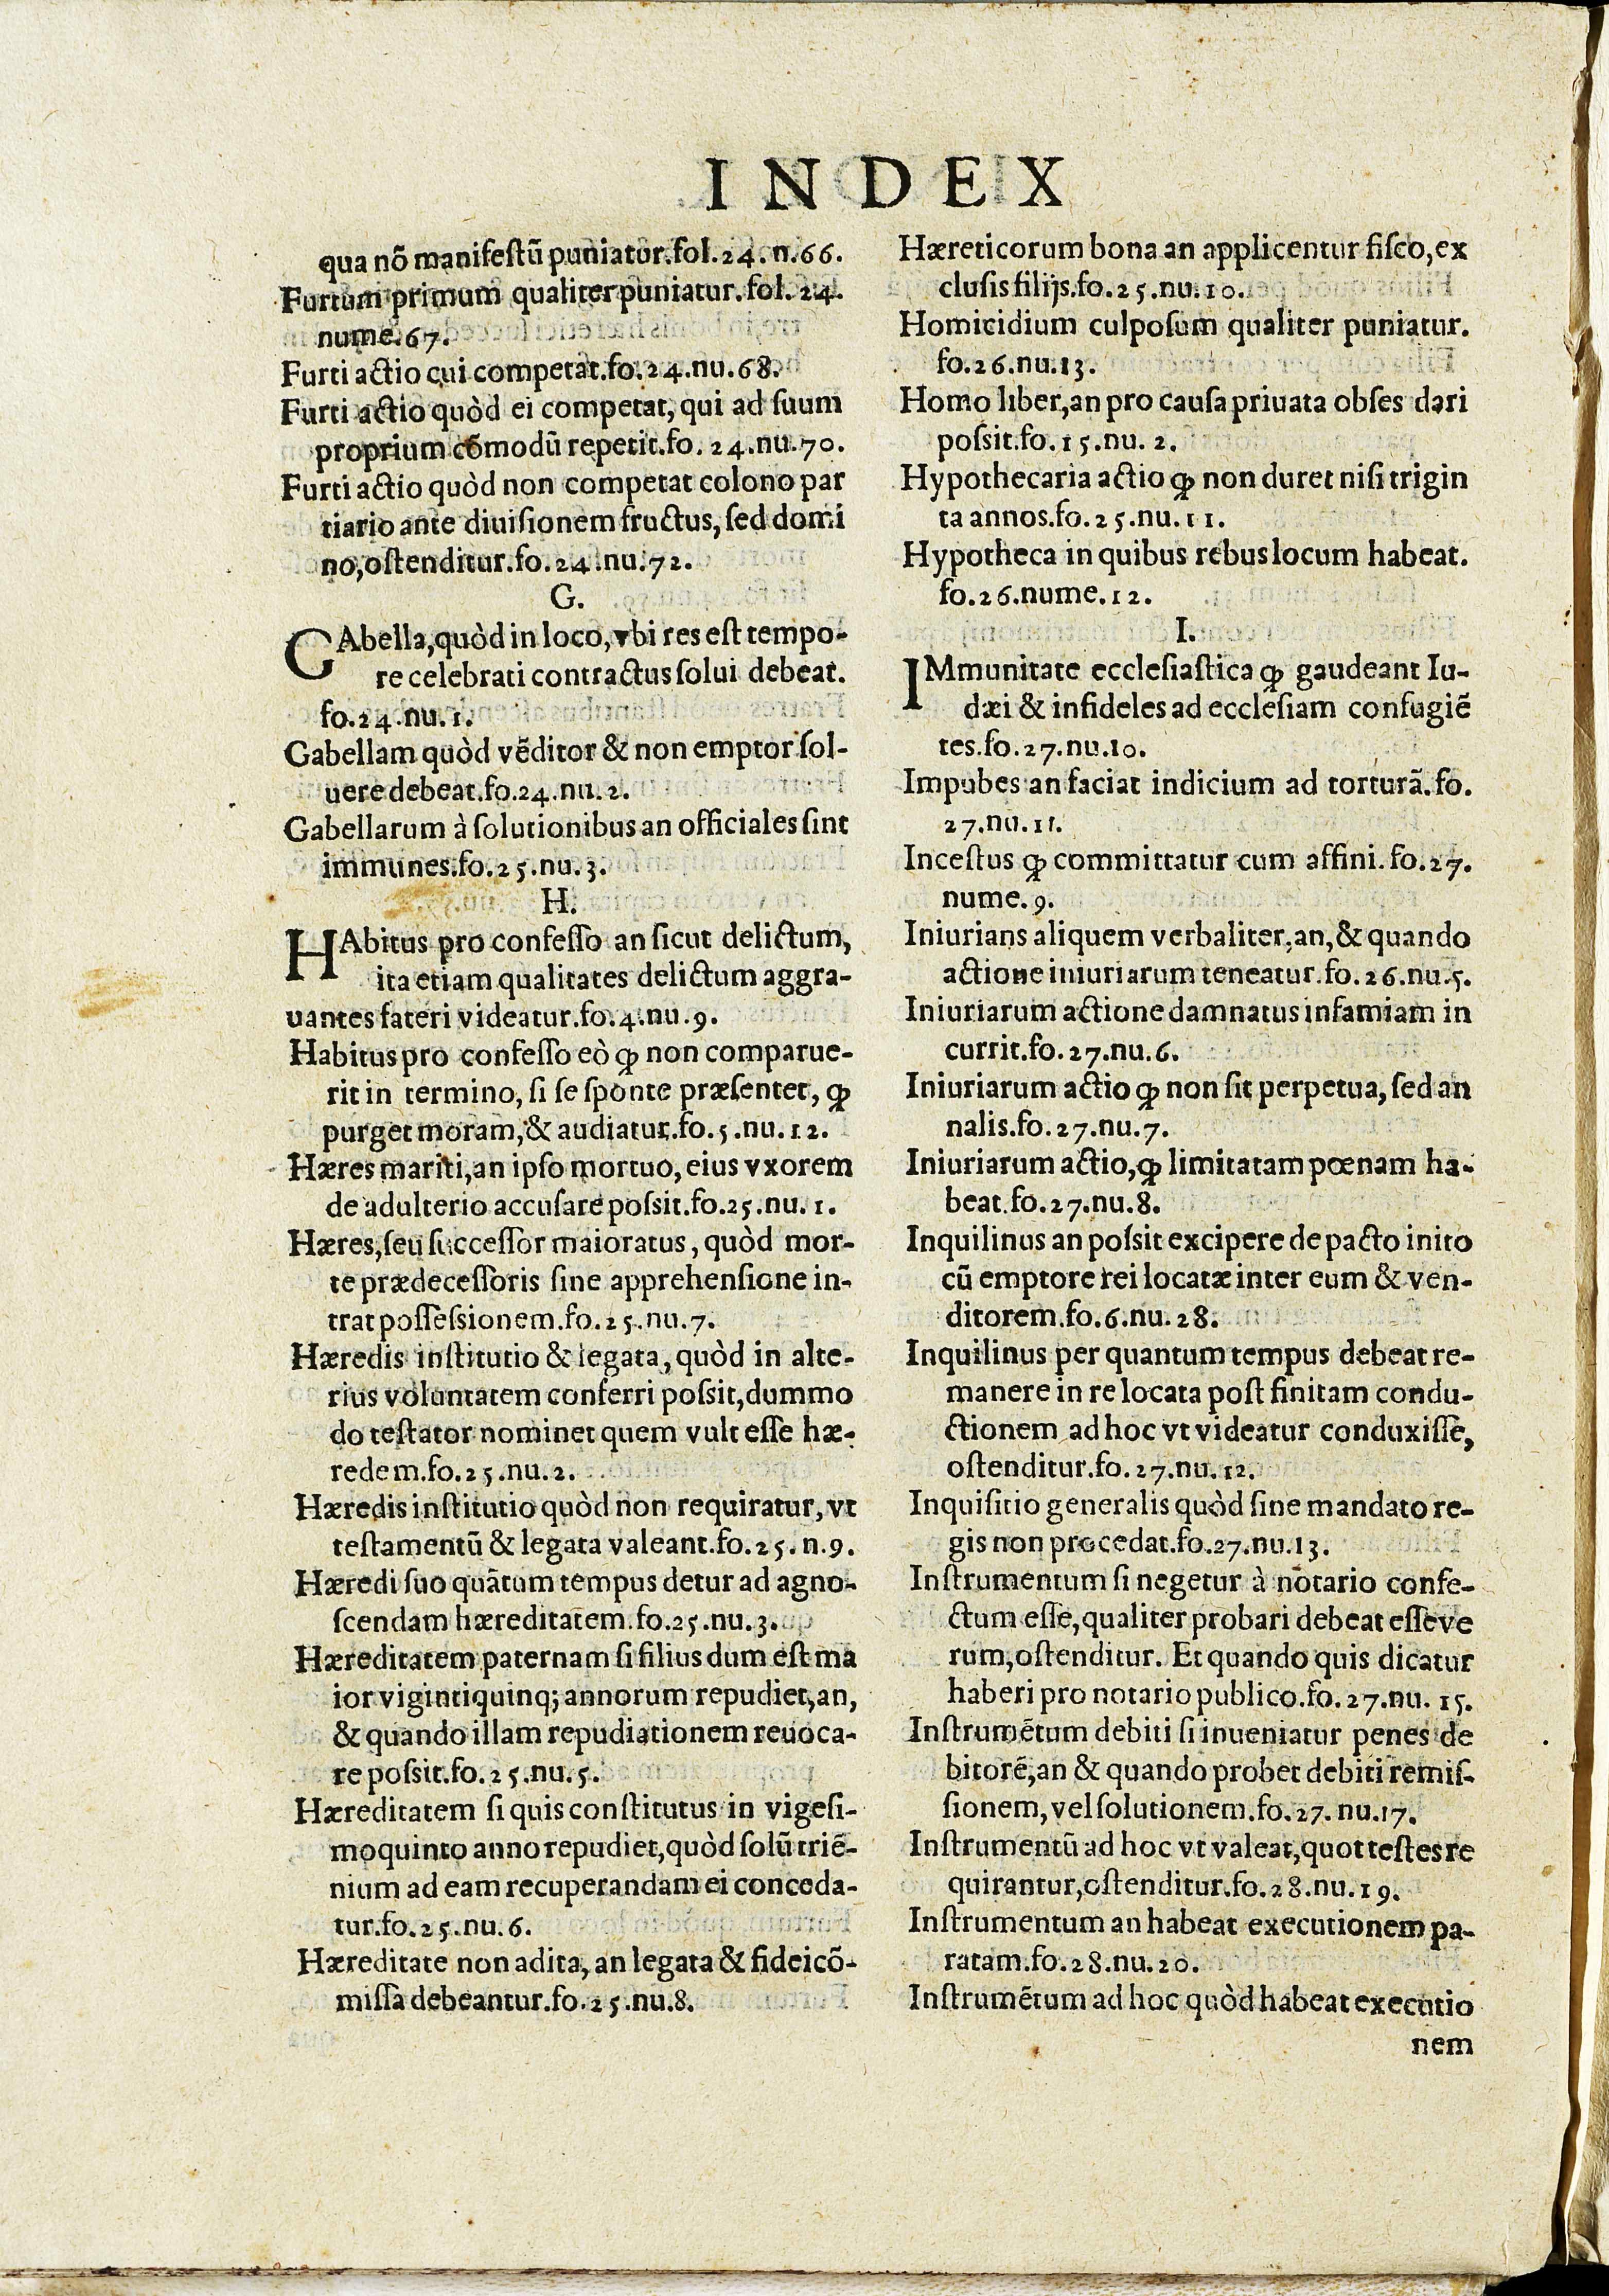 INDEX
qua nõ manifestũ puniatur.fol.24.n.66.
Furtum primum qualiter puniatur. fol. 24.
nume.67.
Furti actio cui competat.fo.24.nu.68.
Furti actio quòd ei competat, qui ad suum
proprium cõmodũ repetit.fo.24.nu.70.
Furti actio quòd non competat colono par
tiario ante diuisionem fructus, sed domi
no,ostenditur.fo.24.nu.72.
G.
GAbella,quòd in loco, vbi res est tempo-
re celebrati contractus solui debeat.
fo.24.nu.1.
Gabellam quòd vẽditor & non emptor sol-
uere debeat.fo.24.nu.2.
Gabellarum à solutionibus an officiales sint
immunes.fo.25.nu.3.
H.
HAbitus pro confesso an sicut delictum,
ita etiam qualitates delictum aggra-
uantes fateri videatur.fo.4.nu.9.
Habitus pro confesso eò ꝙ non comparue-
rit in termino, si se sponte præsentet, ꝙ
purget moram,& audiatur.fo.5.nu.12.
Hæres mariti,an ipso mortuo, eius vxorem
de adulterio accusare possit.fo.25.nu.1.
Hæres,seu successor maioratus, quòd mor-
te prædecessoris sine apprehensione in-
trat possessionem.fo.25.nu.7.
Hæredis institutio & legata, quòd in alte-
rius voluntatem conferri possit,dummo
do testator nominet quem vult esse hæ-
redem.fo.25.nu.2.
Hæredis institutio quòd non requiratur, vt
testamentũ & legata valeant.fo.25.n.9.
Hæredi suo quãtum tempus detur ad agno-
scendam hæreditatem.fo.25.nu.3.
Hæreditatem paternam si filius dum est ma
ior vigintiquinq; annorum repudiet,an,
& quando illam repudiationem reuoca-
re possit.fo.25.nu.5.
Hæreditatem si quis constitutus in vigesi-
moquinto anno repudiet,quòd solũ triẽ-
nium ad eam recuperandam ei conceda-
tur.fo.25.nu.6.
Hæreditate non adita, an legata & fideicõ-
missa debeantur.fo.25.nu.8.
Hæreticorum bona an applicentur fisco,ex
clusis filijs.fo.25.nu.10.
Homicidium culposum qualiter puniatur.
fo.26.nu.13.
Homo liber,an pro causa priuata obses dari
possit.fo.15.nu.2.
Hypothecaria actio ꝙ non duret nisi trigin
ta annos.fo.25.nu.11.
Hypotheca in quibus rebus locum habeat.
fo.26.nume.12.
I.
IMmunitate ecclesiastica ꝙ gaudeant Iu-
dæi & infideles ad ecclesiam confugiẽ
tes.fo.27.nu.10.
Impubes an faciat indicium ad torturã.fo.
27.nu.11.
Incestus ꝙ committatur cum affini.fo.27.
nume.9.
Iniurians aliquem verbaliter,an,& quando
actione iniuriarum teneatur.fo.26.nu.5.
Iniuriarum actione damnatus infamiam in
currit.fo.27.nu.6.
Iniuriarum actio ꝙ non sit perpetua, sed an
nalis.fo.27.nu.7.
Iniuriarum actio,ꝙ limitatam pœnam ha-
beat.fo.27.nu.8.
Inquilinus an possit excipere de pacto inito
cũ emptore rei locatæ inter eum & ven-
ditorem.fo.6.nu.28.
Inquilinus per quantum tempus debeat re-
manere in re locata post finitam condu-
ctionem ad hoc vt videatur conduxisse,
ostenditur.fo.27.nu.12.
Inquisitio generalis quòd sine mandato re-
gis non procedat.fo.27.nu.13.
Instrumentum si negetur à notario confe-
ctum esse, qualiter probari debeat esse ve
rum,ostenditur. Et quando quis dicatur
haberi pro notario publico.fo.27.nu.15.
Instrumẽtum debiti si inueniatur penes de
bitorẽ,an & quando probet debiti remis-
sionem, vel solutionem.fo.27.nu.17.
Instrumentũ ad hoc vt valeat,quot testes re
quirantur,ostenditur.fo.28.nu.19.
Instrumentum an habeat executionem pa-
ratam.fo.28.nu.20.
Instrumẽtum ad hoc quòd habeat executio
nem